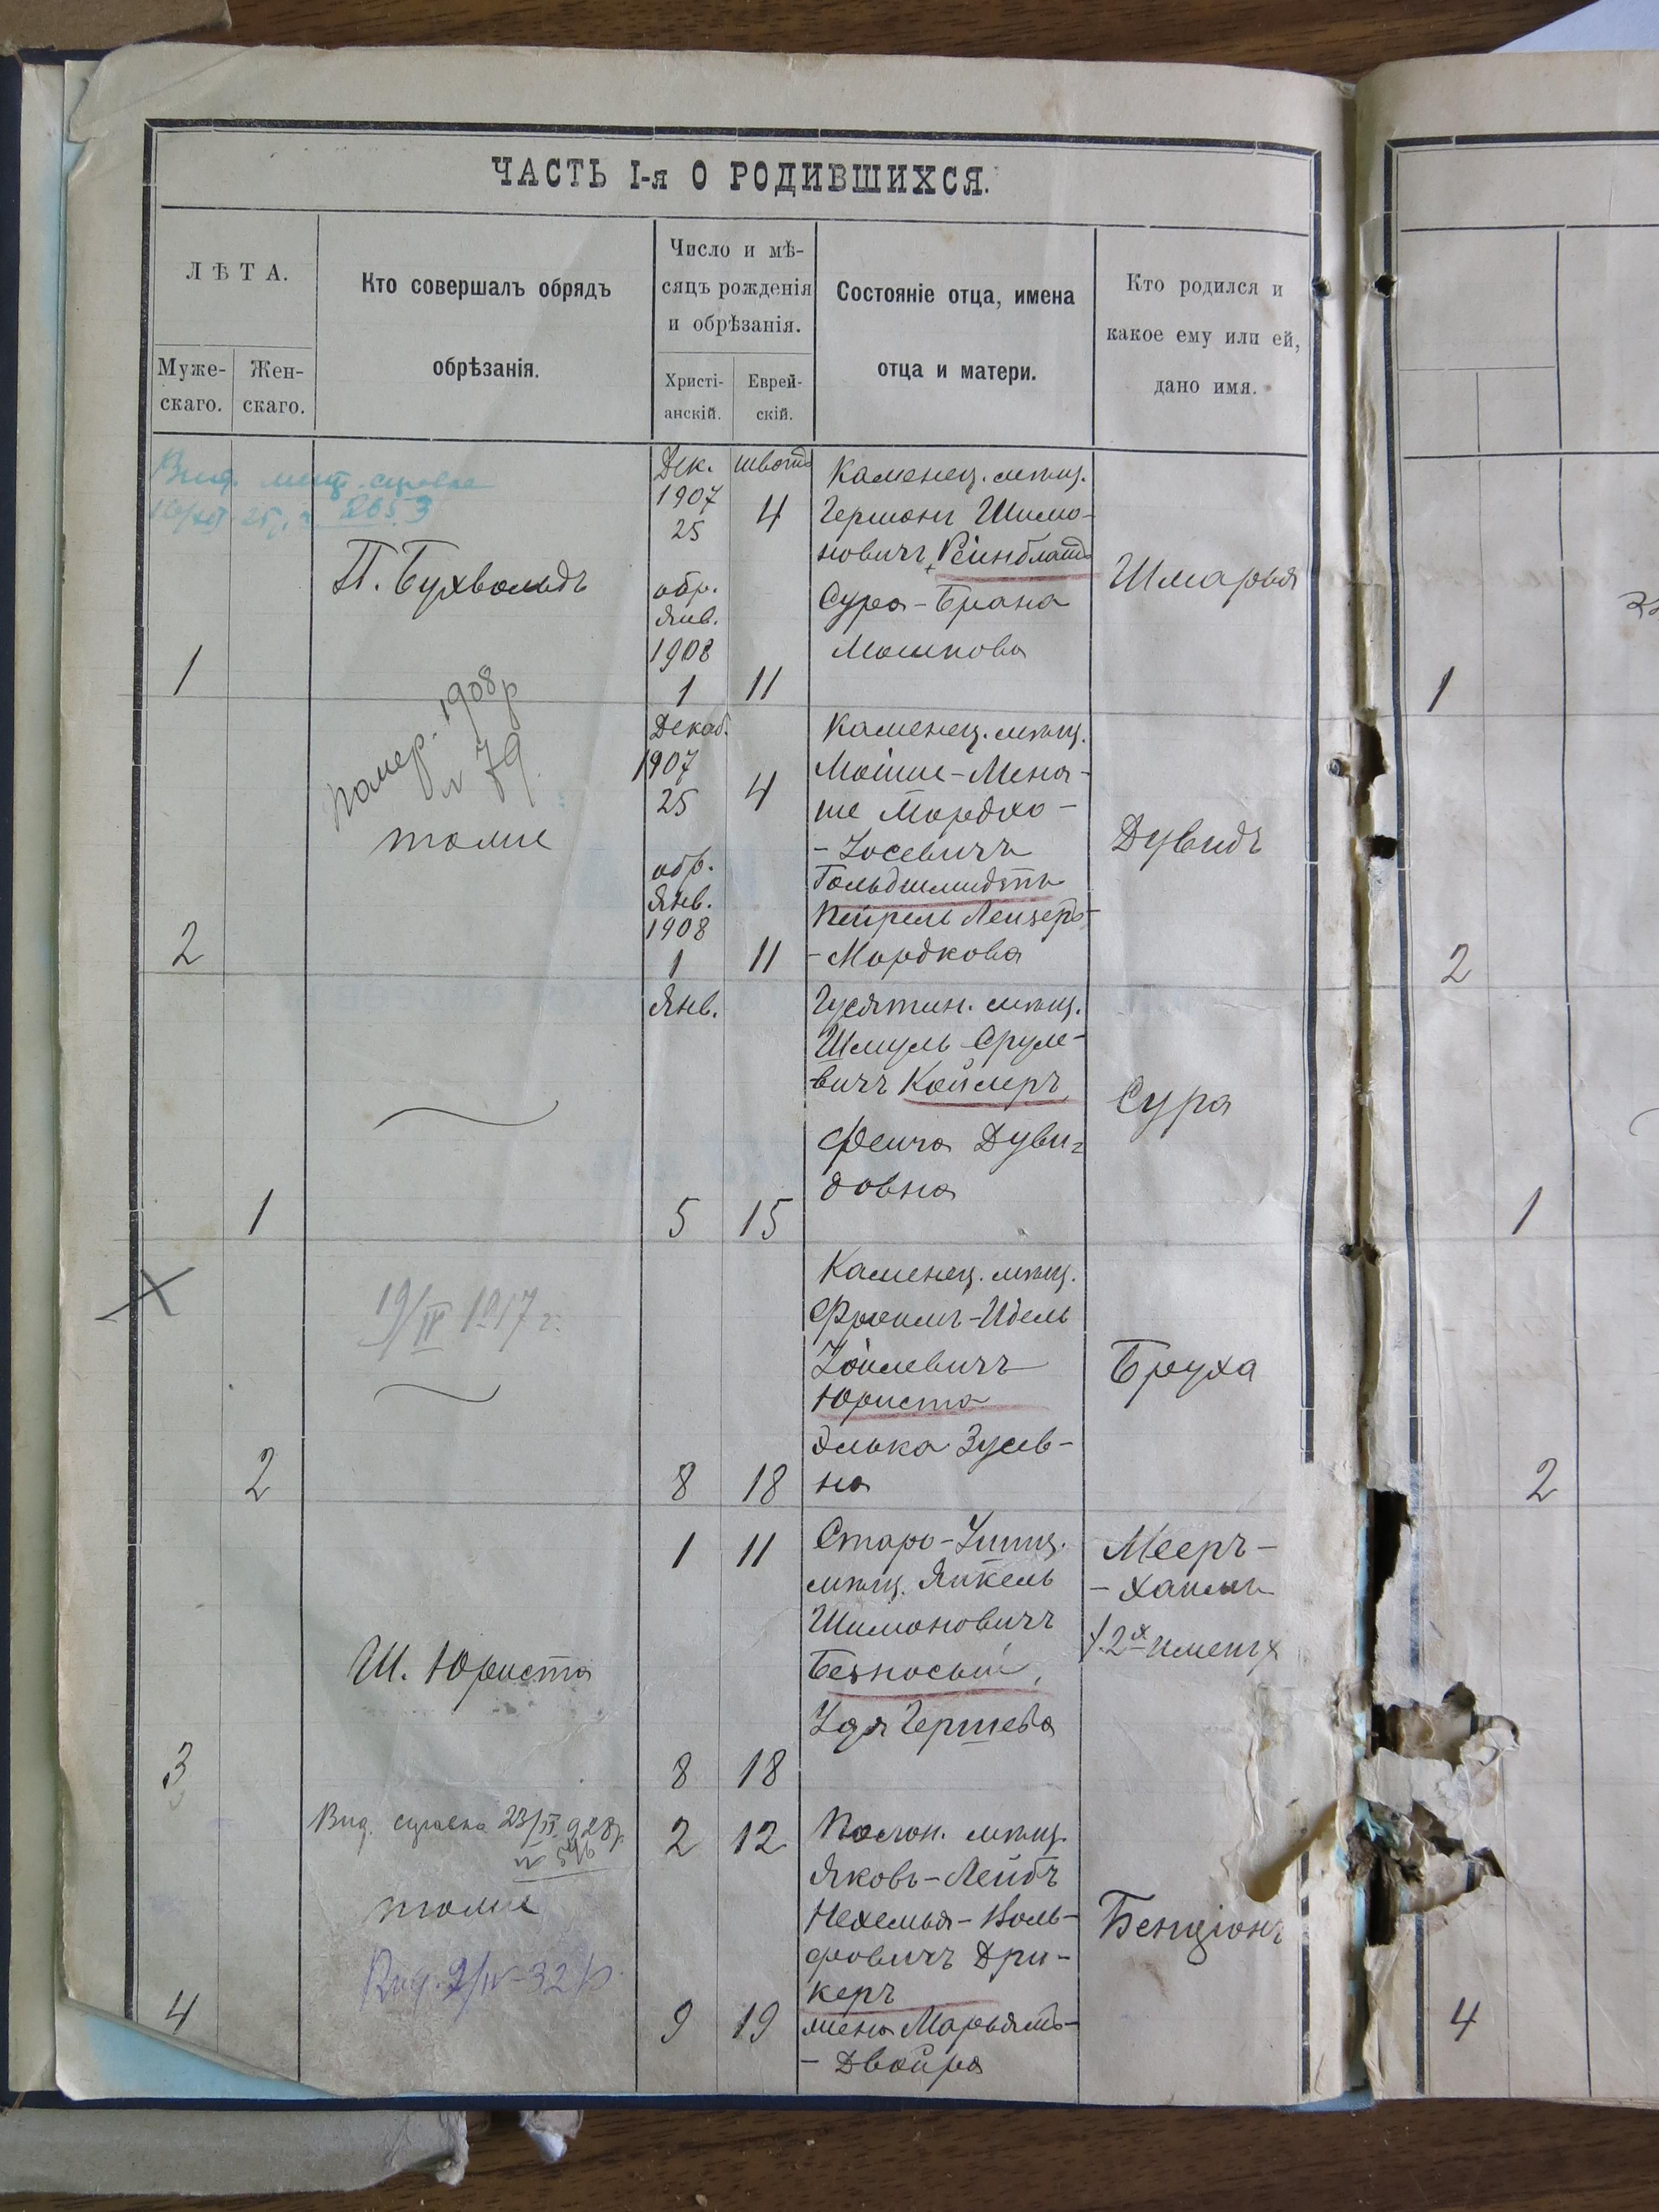 ЧАСТЬ I-я О РОДИВШИХСЯ.
ЛѢТА.
Муже-
скаго.
Жен-
скаго.
Кто совершалъ обрядъ
обрѣзанія.
Число и мѣ-
сяцъ рожденія
и обрѣзанія.
Христі-
анскій.
Еврей-
скій.
Состояніе отца, имена
отца и матери.
Кто родился и
какое ему или ей,
дано имя.
1
П. Бухвольдъ
Дек.
1907
25
обр.
Янв.
1908
1
шватъ
4
11
Каменец. мѣщ.
Гершонъ Шимо-
новичъ Рейнблатъ
Сура-Брана
Мошкова
Шмарья
1
2
Помер. 1908 р
№ 79.
тоже
Декаб.
1907
25
обр.
Янв.
1908
1
4
11
Каменец. мѣщ.
Мойше-Мена-
ше Мордхо-
-Іосевичъ
Гольдшмидтъ
Пейрель Лейзеръ-
-Мордкова
Дувидъ
2
1
Янв.
5
15
Гусятин. мѣщ.
Шмуль Сруле-
вичъ Коймеръ
Фейга Дуви-
довна
Сура
1
2
19/IV 1917 г.
8
18
Каменец. мѣщ.
Фроимъ-Идель
Хаймовичъ
Юриста
Элька Зусев-
на
Бруха
2
3
Ш. Юриста
1
11
8
18
Старо-Ушиц.
мѣщ. Янкель
Шимоновичъ
Безносый,
Удя Гершева
Мееръ-
-Хаимъ
2х именъ
4
Вид. справка 23/II 928 р.
№ 596
тоже
Вид. 2/IV-32 р.
2
12
9
19
мѣщ.
Яковъ-Лейбъ
Нехемья-Воль-
фовичъ Дри-
керъ
жена Марьямъ-
-Двойра
Бенціонъ
4